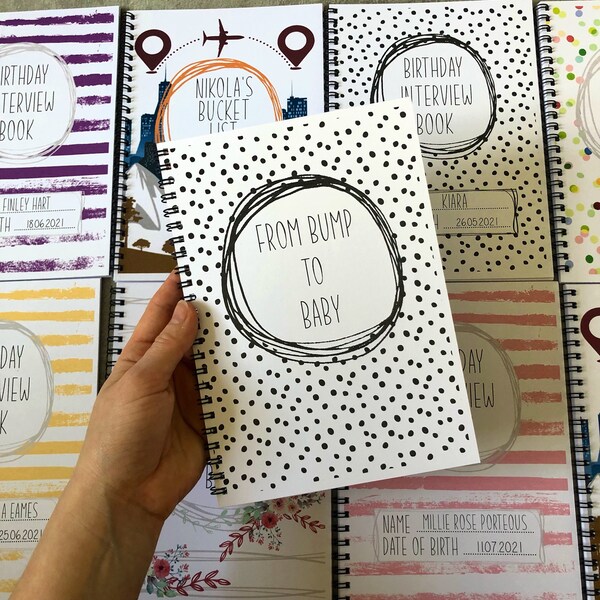 BIRTHDAY
INTERVIEW
BOOK
FINLEY HART
TH 18.06.2021
NIKOLA'S
BUCKET
LIST
BIRTHDAY
INTERVIEW
BOOK
KIARA
26.05.2021
FROM BUMP
TO
BABY
DAY
VIEW
K
A EAMES
25.06.2021
DAY
VIEW
NAME MILLIE ROSE PORTEOUS
DATE OF BIRTH 11.07.2021